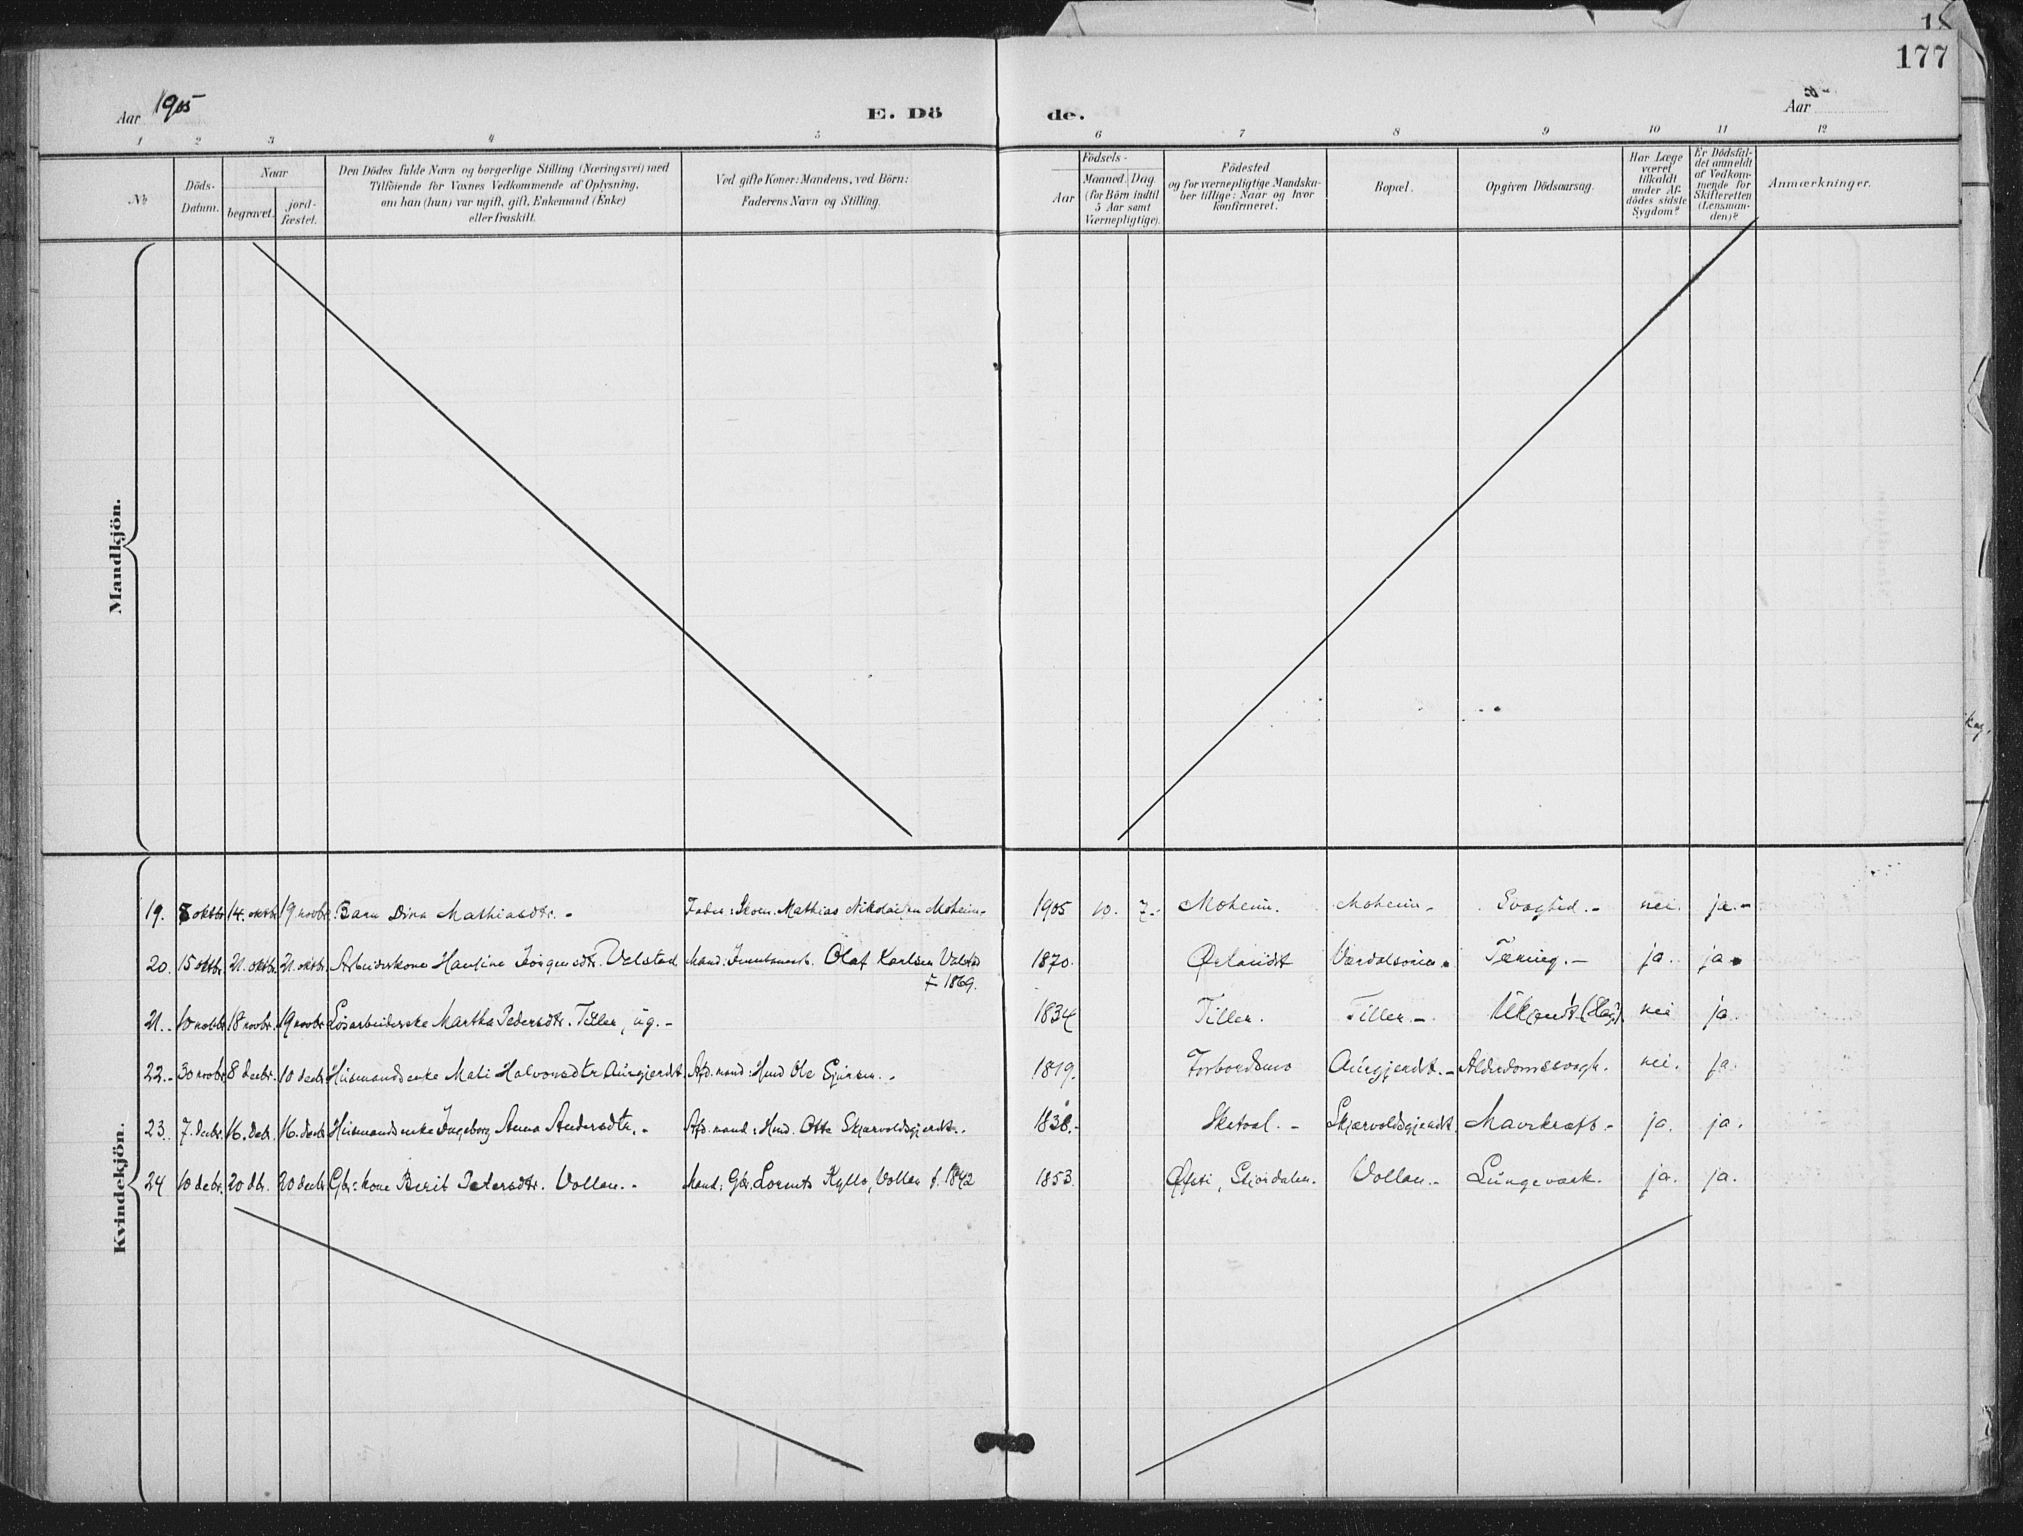 177
Aar 1905
E. Dö de.
Aar
1 2 3 4 5 6 7 8 9 10 11 12
No
Döds-Datum.
Naar
begravet.
jord-fæstet.
Den Dödes fulde Navn og borgerlige Stilling (Næringsvei) med
Tilföiende for Voxnes Vedkommende af Oplysning,
om han (hun) var ugift, gift, Enkemand (Enke)
eller fraskilt.
Ved gifte Koner: Mandens, ved Börn:
Faderens Navn og Stilling.
Födsels-
Aar
Maaned. Dag.
(for Börn indtil
5 Aar samt
Værnepligtige).
Födested
og for værnepligtige Mandska-
ber tillige: Naar og hvor
konfirmeret.
Bopæl.
Opgiven Dödsaarsag.
Har Læge
været
tilkaldt
under Af-
dödes sidste
Sygdom?
Er Dödsfal-
det anmeldt
af Vedkom-
mende for
Skifteretten
(Lensman-
den)?
Anmærkninger.
Mandkjön.
Kvindekjön.
19. 8 oktbr 14. oktbr 19 novbr. Barn Dina Mathiasdtr. - Fader: Skom. Mathias Nikolaisen Moheim. 1905 10. 7. Moheim. Moheim. Svaghed. nei. ja.
20. 15 oktbr. 21. oktbr. 21. oktbr. Arbeiderkone Hansine Jörgensdtr. Valstad Mand: Olaf Karlsen Valstad 1870. Ørlandet Værdalsøren. Tæring. ja. ja.
f. 1869.
21. 10 novbr 18 novbr. 19 novbr. Løsarbeiderske Martha Pedersdtr. Tiller, ug. 1834 Tiller. Tiller. Ukjendt nei ja.
22. 30 novbr. 8 decbr. 10 decbr. Husmandsenke Mali Halvorsdtr Aurgjerdt. Afd. mand: Husmd Ole Sjursen. 1819. Forbordsmo Aurgjerdt. Alderdomssvagh. nei. ja.
23. 7. decbr. 16. decbr. 16. decbr. Husmandsenke Ingeborg Anna Andersdtr. Afd. mand: Husmd. Otte Skjærvoldsgjerdt. 1838. Skjærvoldsgjerdt. Mavekræft. ja. ja.
24 10 decbr. 20 dbr. 20 decbr. Gbr: kone Berit Petersdtr. Vollan. Mand: Gbr. Lorents Kyllo, Vollan f. 1842 1853. Øfsti, Stjørdalen. Vollan. Lungeværk. ja. ja.